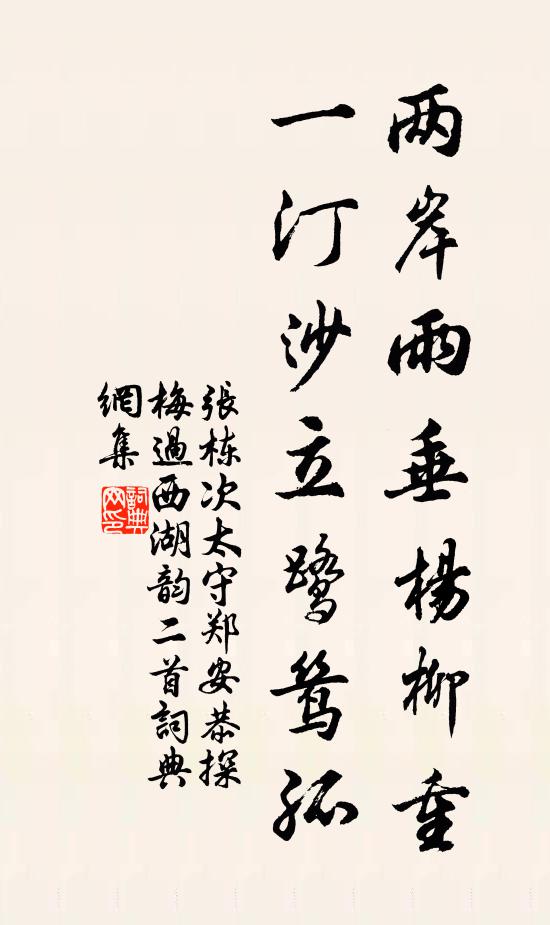 两岸雨垂楊柳重
一汀沙立鹭鸶孤
張栋次太守郑安恭探
梅過西湖韵二首詞典
網集
詞典
网印